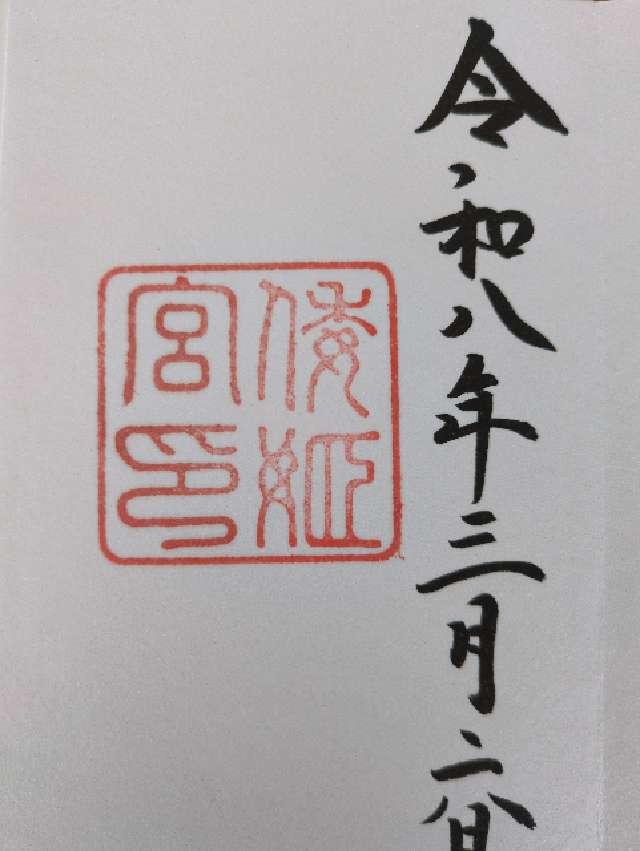 令和八年三月二八日
倭姫
宮印